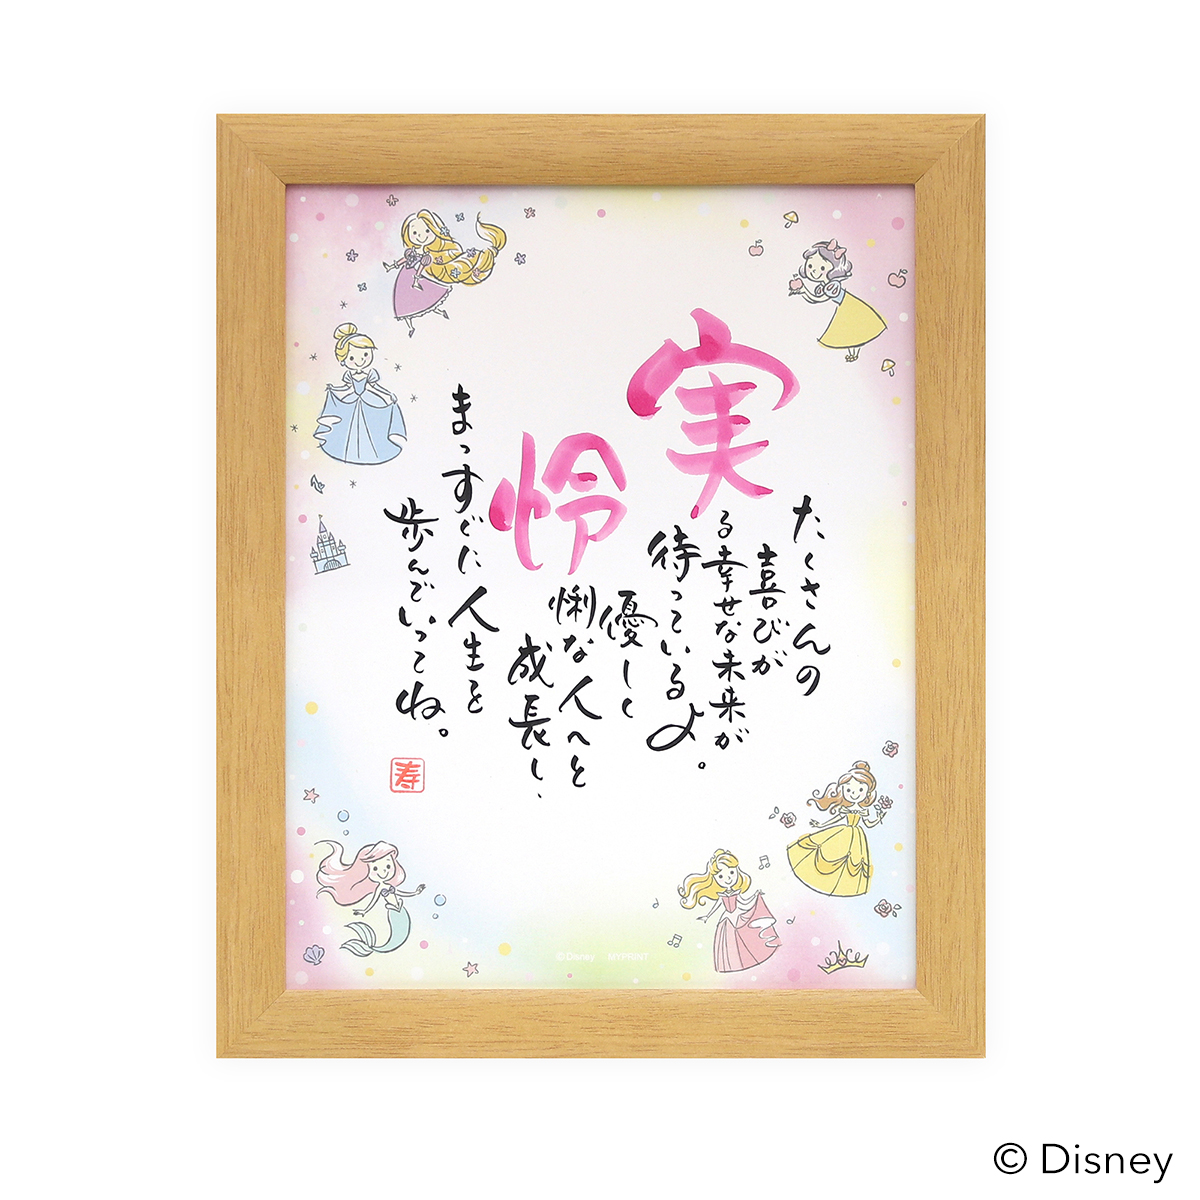 たくさんの
喜びが
実る幸せな未来が
待っているよ。
優しく
怜悧な人へと
成長し、
まっすぐに人生を
歩んでいってね。
寿
©Disney MYPRINT
© Disney